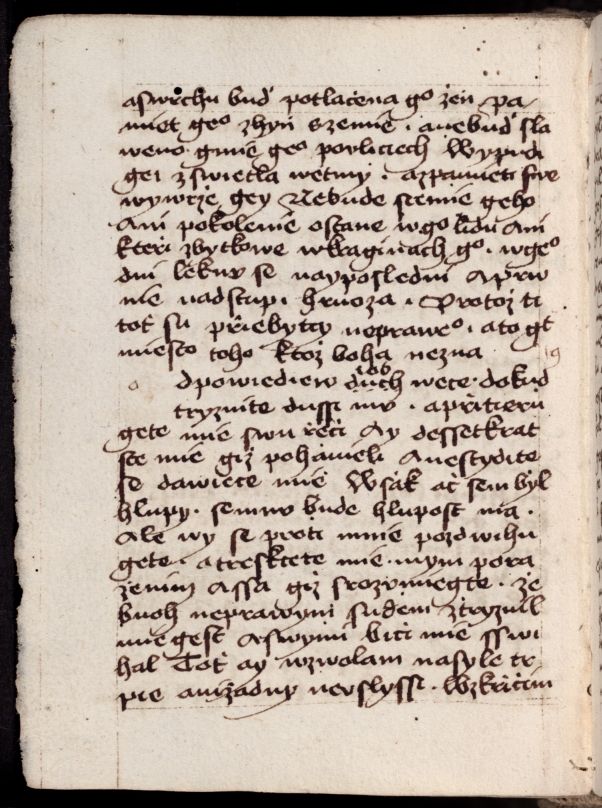 aswrchu bud' potlačena go žeň pa
miet geo zhyň szemie . anebud' sla
weno gmie geo povliciech Wypudi
gei zswietla wetmy . azpamieti swe
wywrže gey Nebude siemie geho
Ani pokolenie ostane wgo lidu Ani
kteři zbytkowe wkraginach go . wgeo
dni leknu se nayposledni Aprw
nie nadstupi hruoza . Protož ti
toť su přiebytcy neprawco . ato gt
miesto toho ktož boha nezna
dpowiediew iob duch wece . dokud
tryznite dussi mu . apřitieru
gete mie swu řeči Ay dessetkrat
ste mie giž pohanieli Anestydite
se dawiece mie Wsak ač sem byl
hlupy . semnu bude hlupost ma .
Ale wy se proti mnie pozdwihu
gete . atresktete mie mym pora
ženim Assa giž srozumiegte . že
buoh neprawym sudem ztryznil
mie gest Aswymi biči mie sswi
hal Toť ay wzwolam nasyle tr
pie anižadny neuslyssi . Wzkřičim